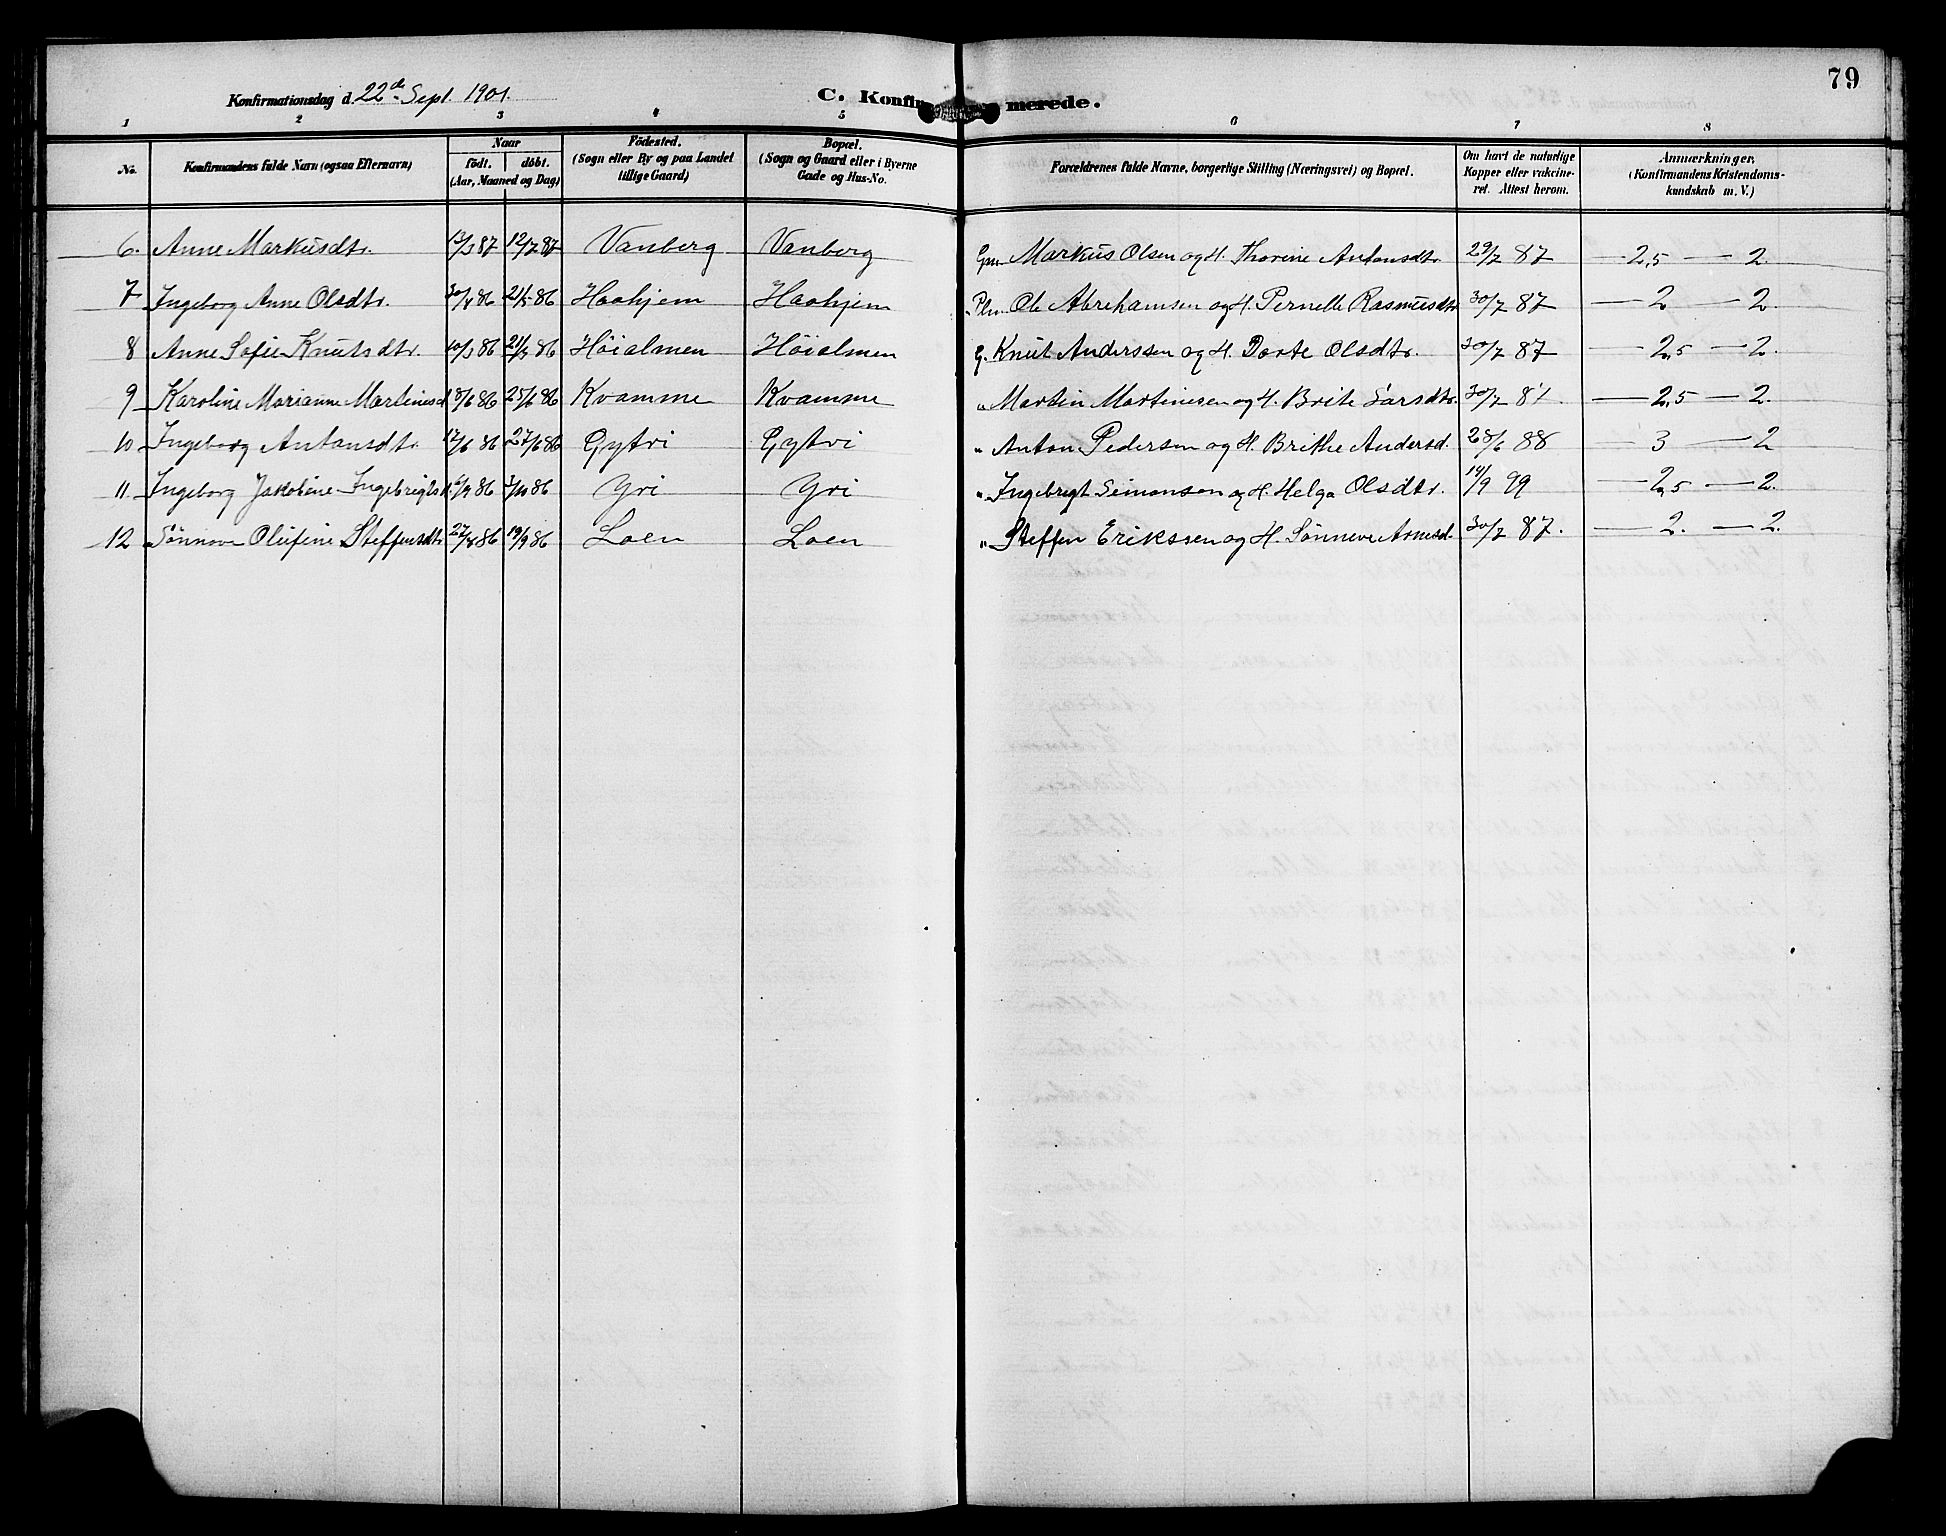 79
Konfirmationsdag d. 22de Sept. 1901. C. Konfirmerede.
1 2 3 4 5 6 7 8
No. Konfirmandens fulde Navn (ogsaa Efternavn) Naar födt. döbt. (Aar, Maaned og Dag) Födested. (Sogn eller By og paa Landet tillige Gaard) Bopæl. (Sogn og Gaard eller i Byerne Gade og Hus-No. Forældrenes fulde Navne, borgerlige Stilling (Næringsvei) og Bopæl. Om havt de naturlige Kopper eller vakcineret. Attest herom. Anmærkninger, (Konfirmandens Kristendomskundskab m. V.)
6. Anne Markusdtr. 13/3 87 12/7 87 Vanberg Vanberg Gm Markus Olsen og H. Thorine Antonsdtr. 29/7 87 — 2,5 — 2.
7 Ingeborg Anne Olsdtr. 30/4 86 2/5 86 Haahjem Haahjem Plm Ole Abrehamsen og H. Pernelle Rasmusdtr 30/7 87 — 2 — 2.
8 Anne Sofie Knutsdtr. 10/3 86 21/3 86 Höialmen Höialmen G. Knut Anderssen og H. Dorte Olsdtr. 30/7 87 — 2,5 — 2.
9 Karoline Marianne Martinusd. 8/6 86 25/6 86 Kvamme Kvamme " Martin Martinesen og H. Brite Larsdtr. 30/7 87 — 2,5 — 2.
10 Ingeborg Antonsdtr. 17/6 86 27/6 86 Gytri Gytri " Anton Pedersen og H. Brithe Andersd. 28/6 88 — 3 — 2
11. Ingeborg Jakobine Ingebrigtsd. 6/9 86 3/10 86 Yri Yri " Ingebrigt Simonsen og H. Helga Olsdtr. 14/9 99 — 2,5 — 2.
12 Sönnove Olufine Steffensdtr 27/8 86 19/9 86 Loen Loen " Steffen Erikssen og H. Sönneve Arnesd. 30/7 87. — 2. — 2.